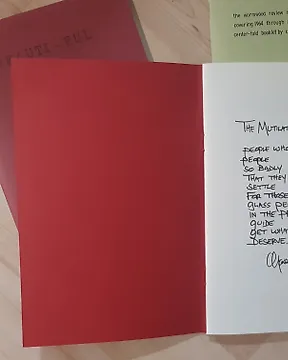 AUTI-FUL
the wormwood review
covering 1964 through
center-fold booklet by
THE MUTILAT
PEOPLE WHO
PEOPLE
SO BADLY
THAT THEY
SETTLE
FOR THOSE
GLASS PE
IN THE P
GUIDE
GET WHAT
DESERVE.